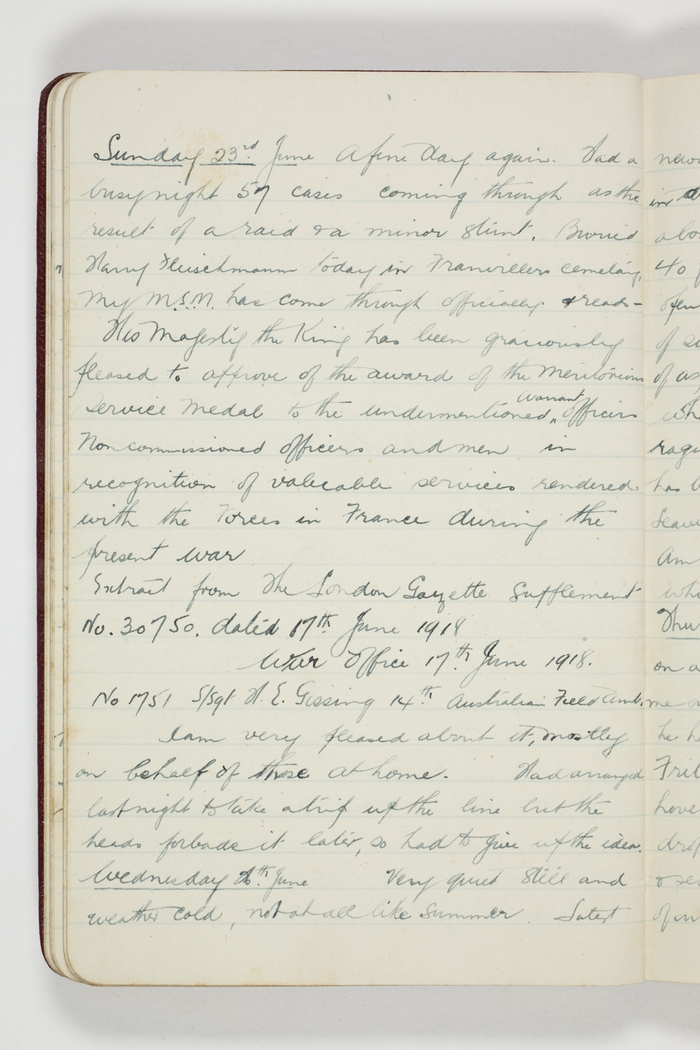 Sunday 23rd June A fine day again. Had a
busy night 57 cases coming through as the
result of a raid & a minor stunt. Buried
Harry Fleischmann today in Franvillers cemetary,
My M.S.M. has come through officially & reads-
His Majesty the King has been graciously
pleased to approve of the award of the Meritorious
Service Medal to the undermentioned, warrant officers
Noncommissioned officers and men in
recognition of valuable services rendered
with the Forces in France during the
present war
Extract from the London Gazette Supplement
No. 30750. dated 17th June 1918
War Office 17th June 1918.
No 1751 S/Sgt H. E. Gissing 14th Australian Field Amb.
I am very pleased about it, mostly
on behalf of those at home. Had arranged
last night to take a trip up the line but the
heads forbade it later, so had to give up the idea.
Wednesday 26th June Very quiet still and
weather cold, not at all like summer. Latest
news
in
40
of
of
on a
me
he
of